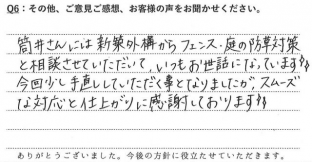 Q6：その他、ご意見ご感想、お客様の声をお聞かせください。
筒井さんには新築外構からフェンス・庭の防草対策
と相談させていただいて、いつもお世話になっています!!
今回少し手直ししていただく事となりましたが、スムーズ
な対応と仕上がりに感謝しております!!
ありがとうございました。今後の方針に役立たせていただきます。